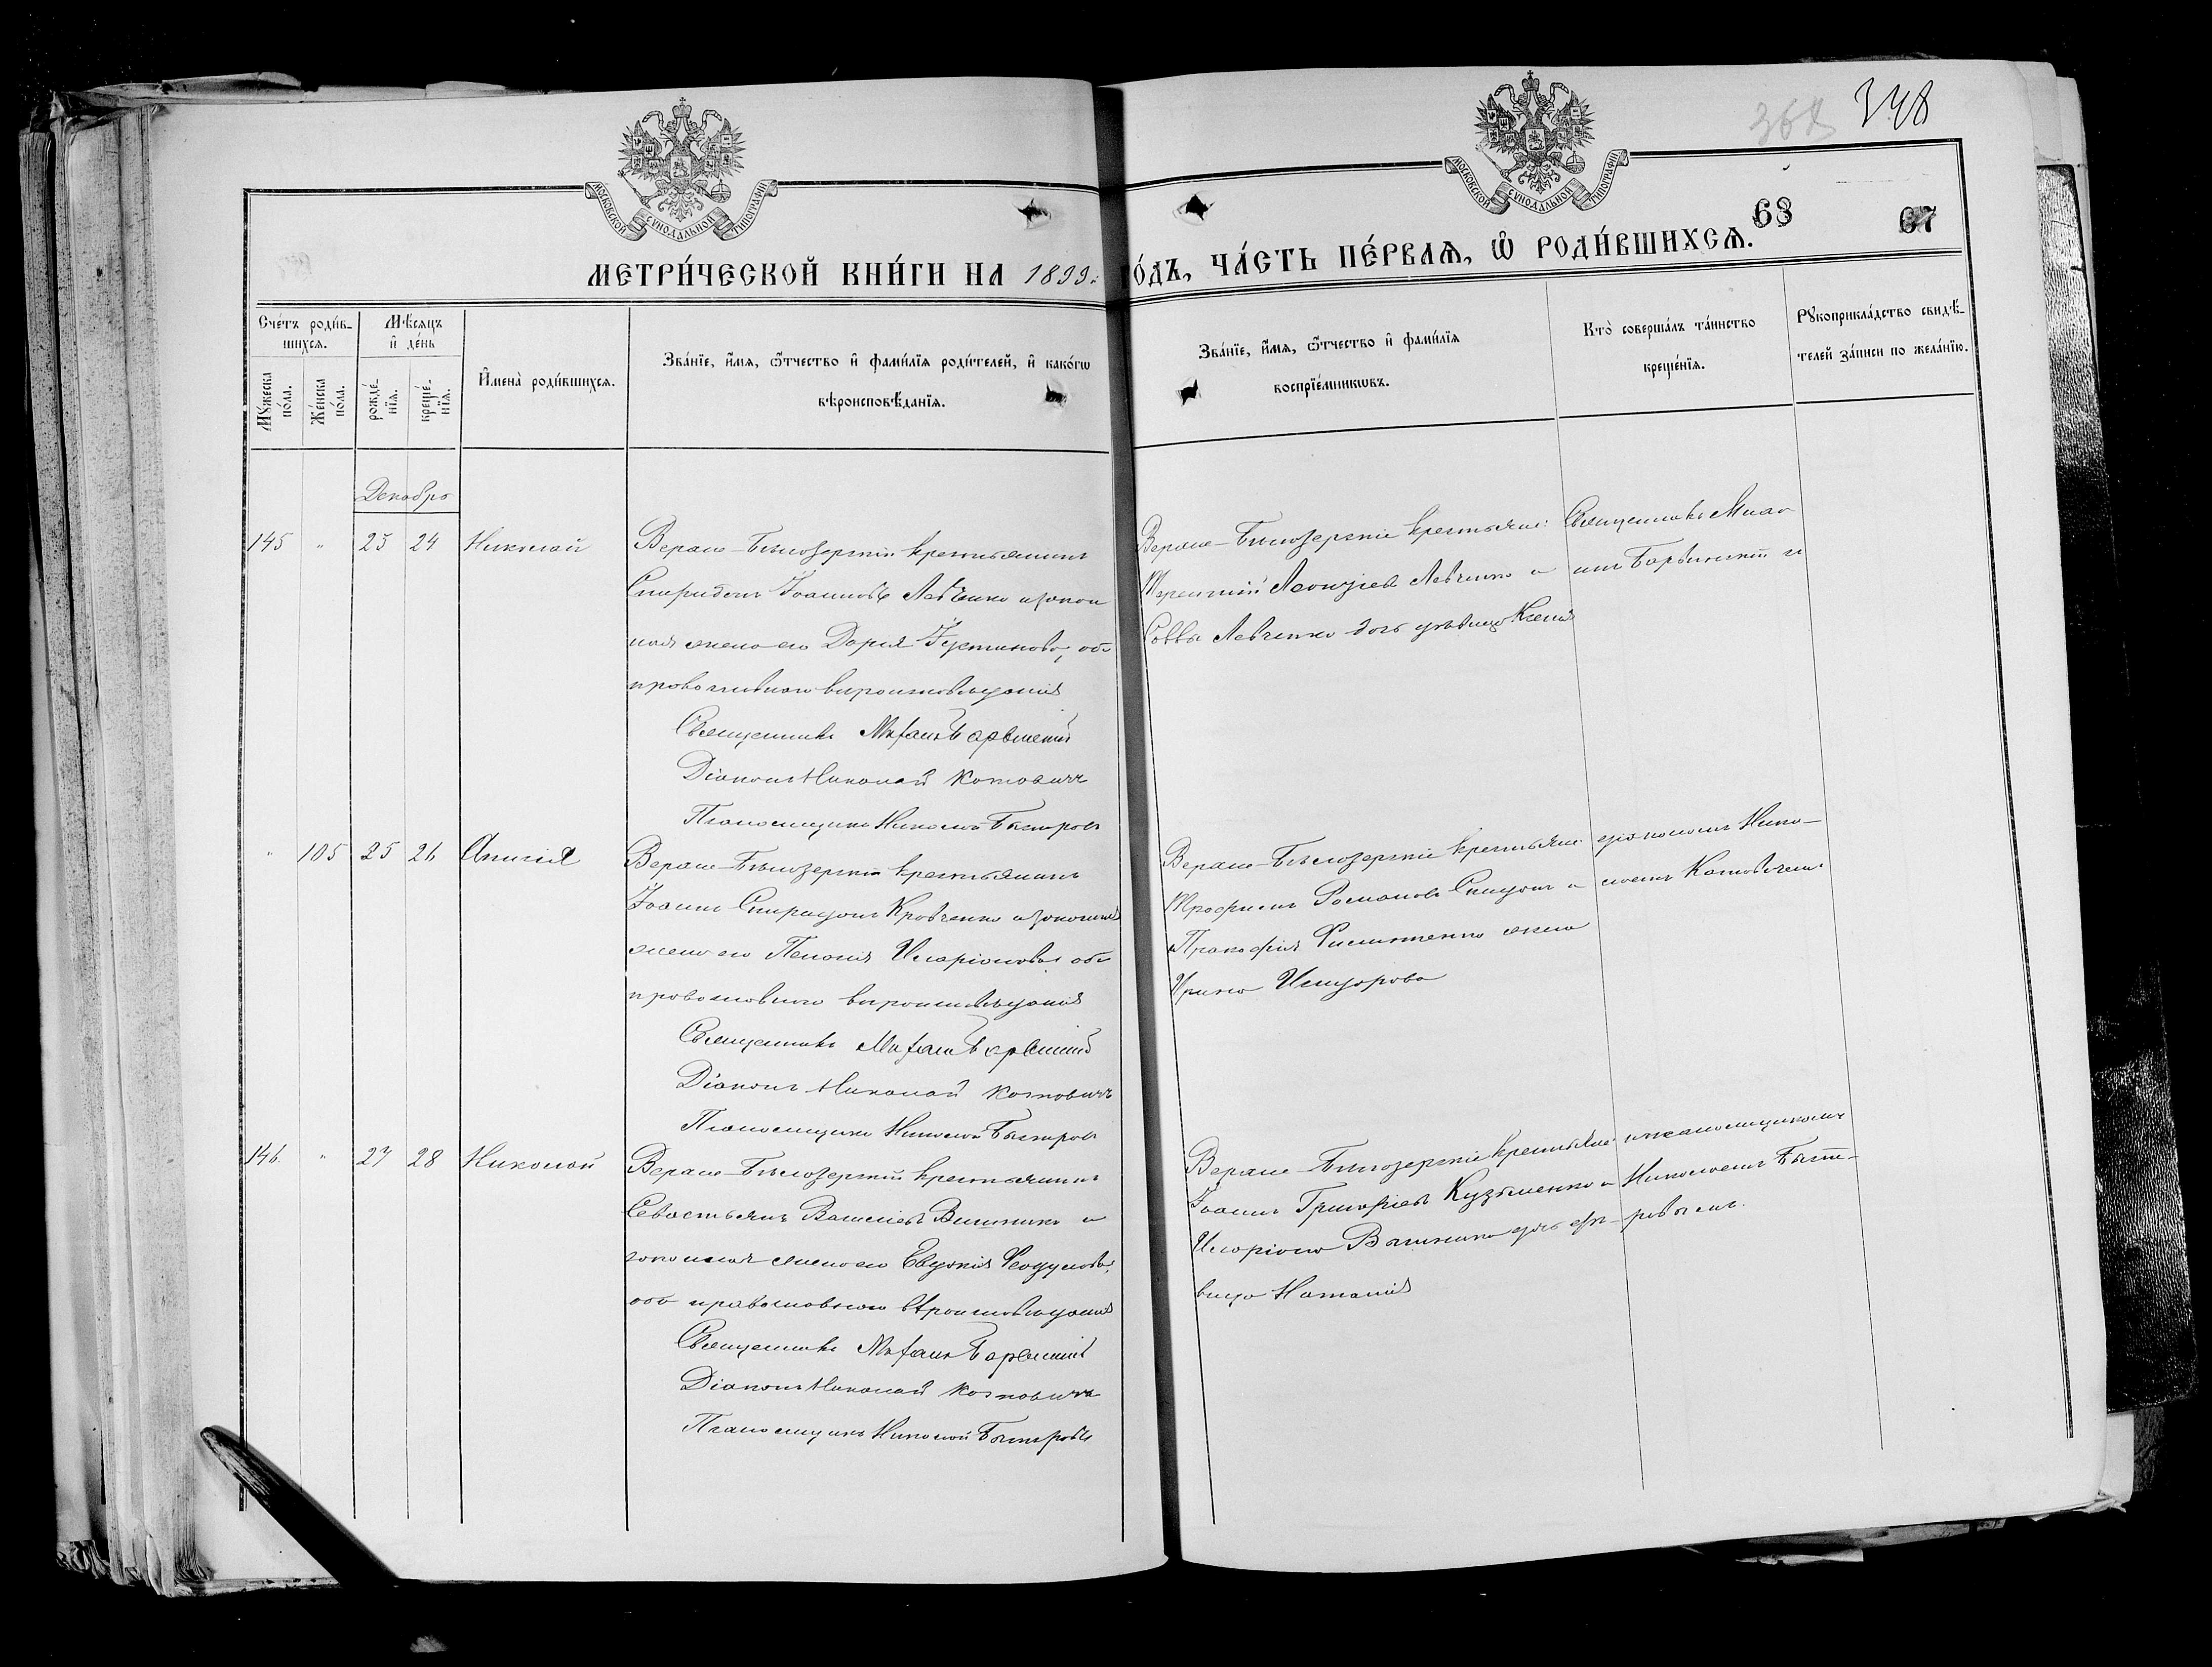 368 348
МОСКОВСКОЙ СУНОДАЛЬНОЙ ТИПОГРАФІИ
МОСКОВСКОЙ СУНОДАЛЬНОЙ ТИПОГРАФІИ
68 67
МЕТРИ́ЧЕСКОЙ КНИ́ГИ НА 1899 го́дъ, ЧА́СТЬ ПЕ́РВАѦ, Ѿ РОДИ́ВШИХСѦ.
Сче́тъ роди́в-
шихсѧ.
Мꙋжеска по́ла.
Же́нска по́ла.
Мѣ́сѧцъ и҆ де́нь
рожде́-
нїѧ.
креще́-
нїѧ.
И҆мена̀ роди́вшихсѧ.
Зва́нїе, и҆́мѧ, ѻ҆́тчество и҆ фами́лїѧ роди́телей, и҆ како́гѡ
вѣроисповѣ́данїѧ.
Зва́нїе, и҆́мѧ, ѻ҆́тчество и҆ фами́лїѧ
воспрїе́мникѡвъ.
Кто̀ соверша́лъ та́инство
креще́нїѧ.
Рꙋкоприкла́дство свидѣ́-
телей за́писи по жела́нїю.
Декабрь
145 " 23 24 Николай
Верхне-Бѣлозерскій крестьянинъ
Спиридонъ Іоанновъ Левченко и закон
ная жена его Дарья Іустинова, оба
православнаго вѣроисповѣданія
Священникъ Михаилъ Барвинскій
Діаконъ Николай Котовичъ
Псаломщикъ Николай Быстровъ
Верхне-Бѣлозерскіе крестьяне:
Терентій Леонтіевъ Левченко и
Саввы Левченко дочь дѣвица Ксенія
Священникъ Миха-
илъ Барвинскій и
" 105 25 26 Анисія
Верхне-Бѣлозерскій крестьянинъ
Іоаннъ Спиридоновъ Кравченко и законная
жена его Пелагія Иларіонова оба
православнаго вѣроисповѣданія
Священникъ Михаилъ Барвинскій
Діаконъ Николай Котовичъ
Псаломщикъ Николай Быстровъ
Верхне-Бѣлозерскіе крестьяне:
Трофимъ Романовъ и
Прокофія Филипенко жена
Ирина Исидорова
діакономъ Нико-
лаемъ Котовичемъ
146. " 27 28 Николай
Верхне-Бѣлозерскій крестьянинъ
Севастьянъ Васильевъ и
законная жена его Евдокія Феодулова,
оба православнаго вѣроисповѣданія
Священникъ Михаилъ Барвинскій
Діаконъ Николай Котовичъ
Псаломщикъ Николай Быстровъ
Верхне-Бѣлозерскіе крестьяне:
Іоаннъ Григоріевъ Кузьменко и
Иларіона дочь дѣ-
вица Наталія
и псаломщикомъ
Николаемъ Быст-
ровымъ.